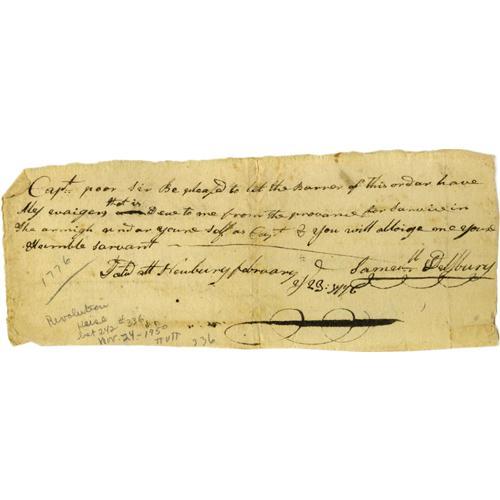 Capt poor Sir Be pleased to let the Barrer of this ordar have
My waigers that is Due to me from the provance for Sarvice in
the armigh under youre Self as Capt & you will oblige me your
Humble sarvant
Dated att Newbury february
ye 23: 1776
Samell Pillsbury
1776
Revolution
Heise
Lot 242 #336
Nov. 24 - 1950
336